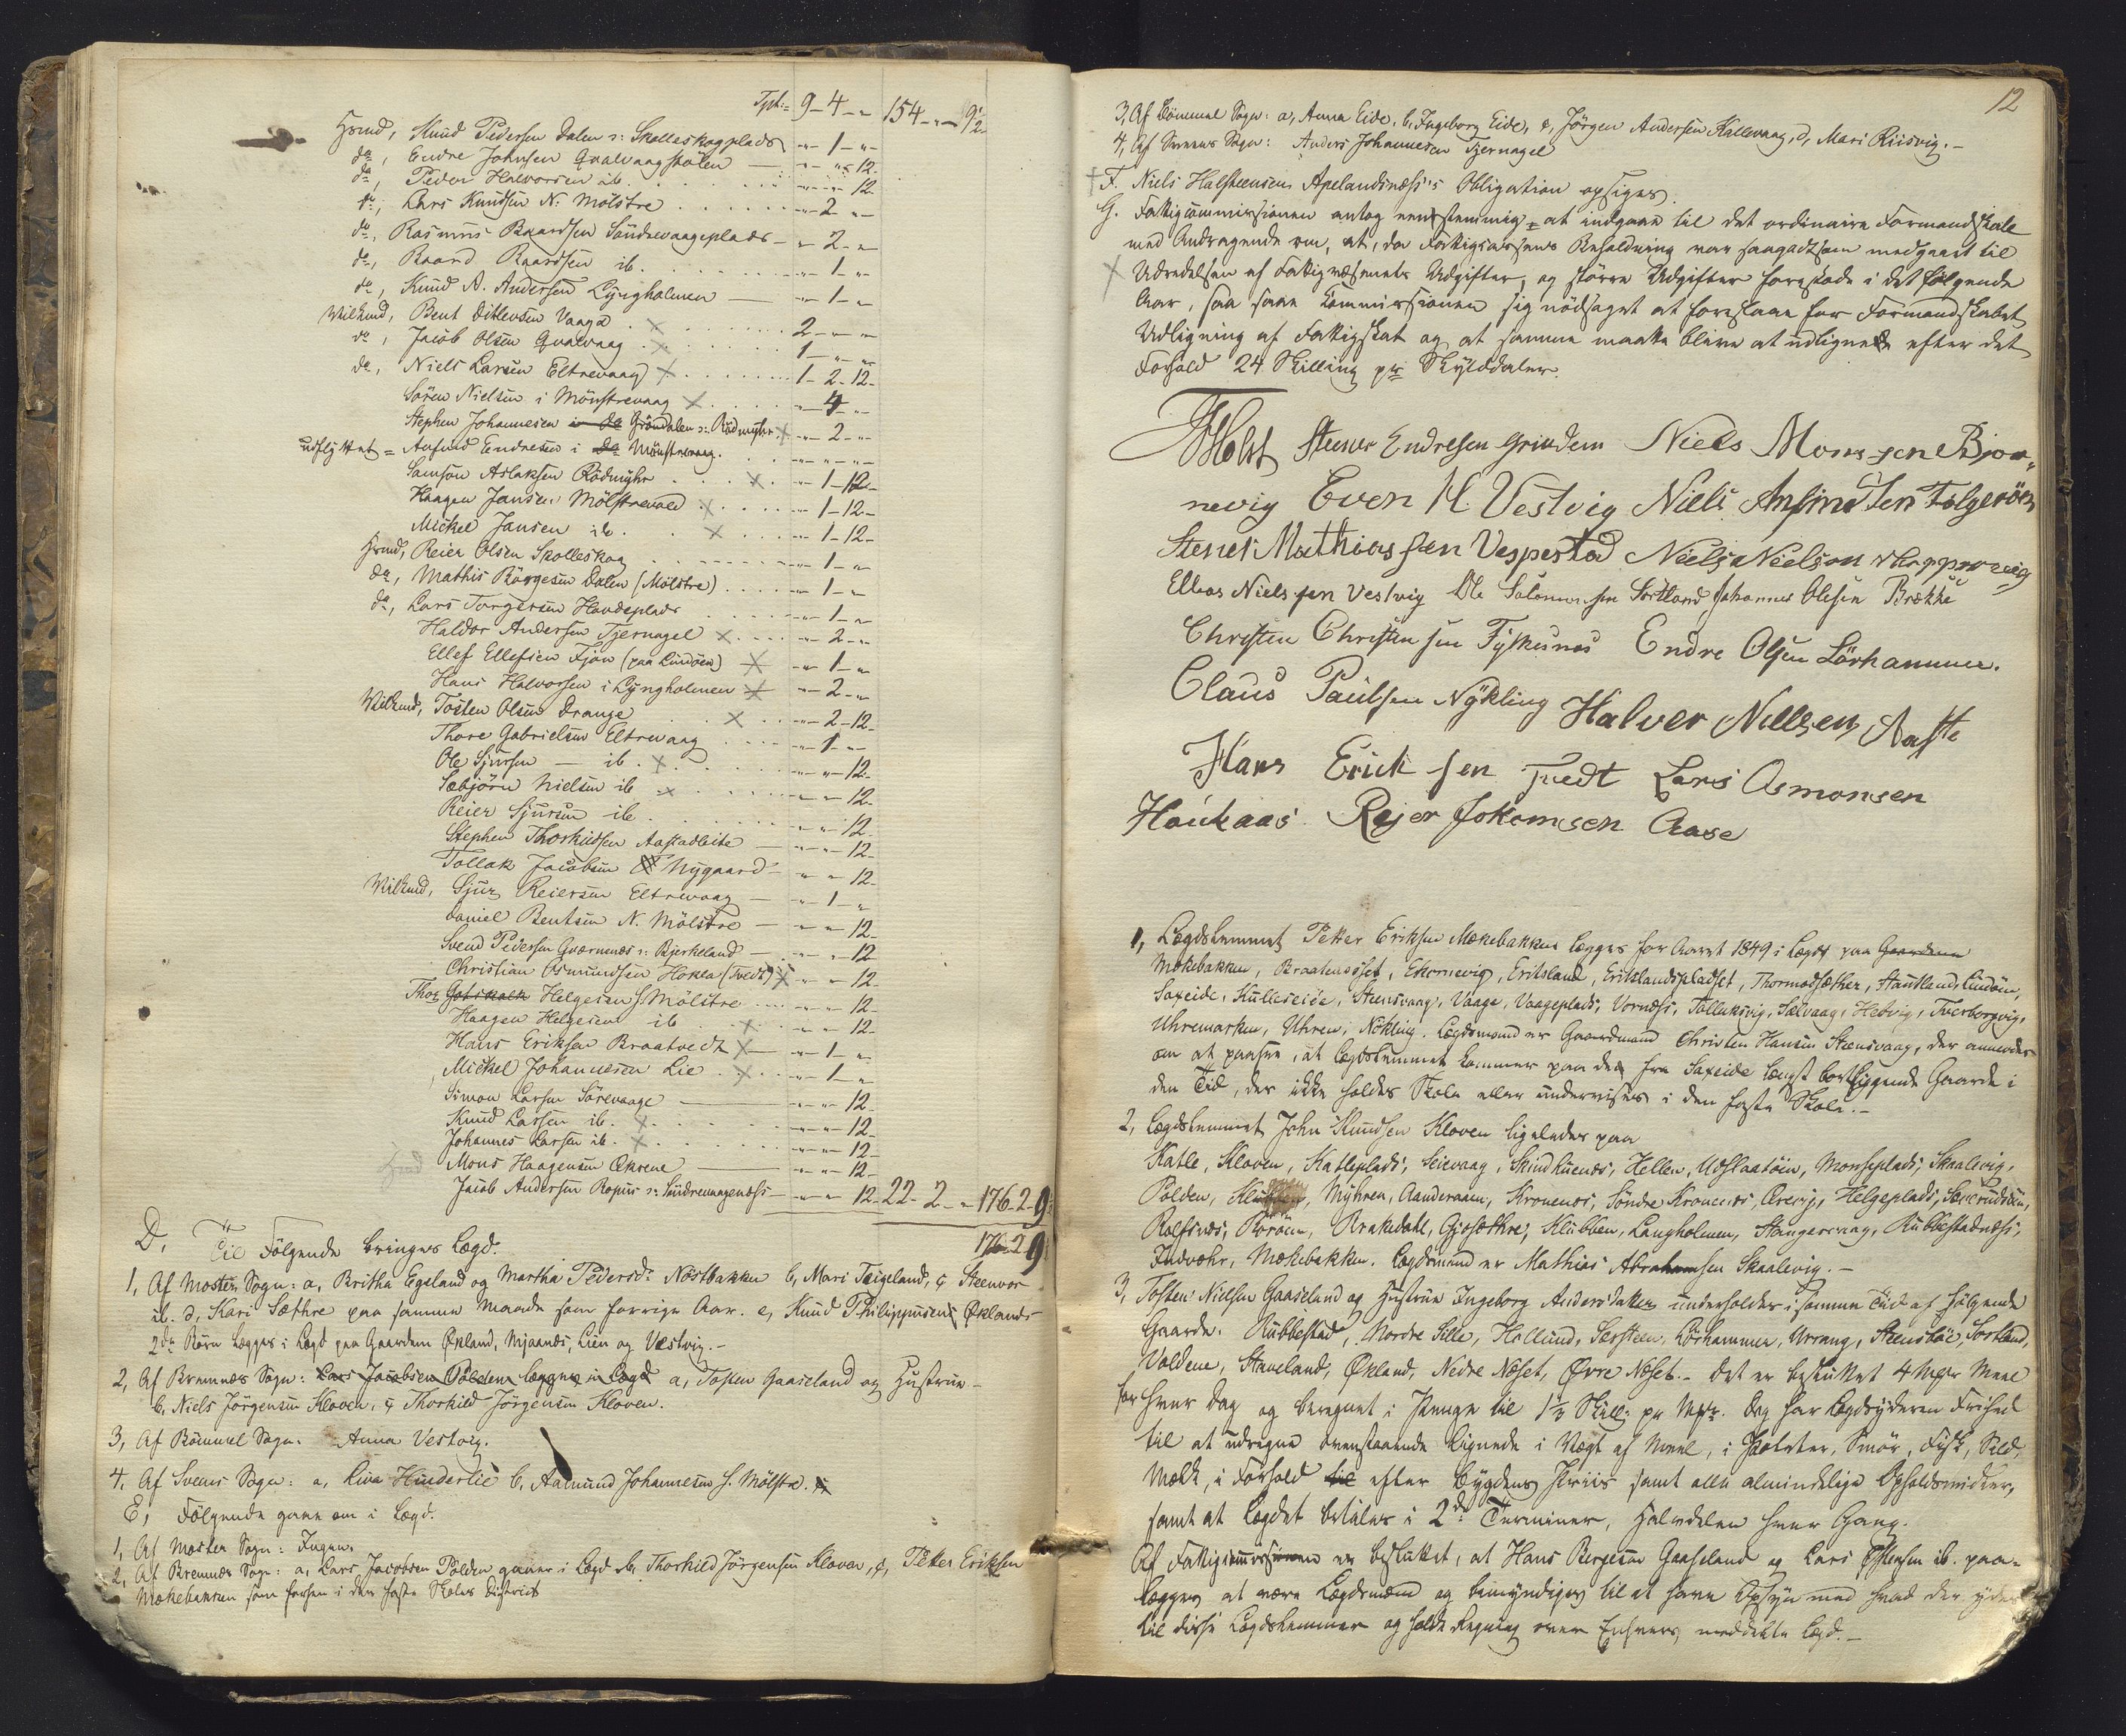 Tpt: 9 - 4 - " 154 - " - 9½
Hsmd, Knud Pedersen Dalen ɔ: Skolleskogplads " - 1 - "
do, Endre Johnsen Qvalvaagstølen — " - " - 12
do, Peder Halvorsen ib. " - " - 12
do, Lars Knudsen N. Mølstre " - 2 - "
do, Rasmus Baardsen Søndrevaageplads - " - 2 - "
do, Baard Baardsen ib. " - 1 - "
do, Knud A. Andersen Lyngholmen — " - 1 - "
Bent Ditlevsen Vaage × 2 - " - "
do, Jacob Olsen Qvalvaag × 1 - " - "
do, Niels Larsen Eltrevaag × 1 - 2 - 12
Søren Nielsen i Mønstrevaag × " - 4 - "
Stephen Johannesen i do Grøndalen ɔ: Rødmyhr × " - 2 - "
udflyttet = Anfind Endresen i do Mønstrevaag. " - " - "
Samson Aslaksen Rødmyhr × " - 1 - 12
Haagen Jansen Mølstrevold × " - 1 - 12
Mickel Jansen ib. × " - 1 - 12
Hsmd, Reier Olsen Skolleskog " - 1 - "
do, Mathis Børgesen Dalen (Mølstre) " - 1 - "
do, Lars Torgersen Hovdeplads " - 1 - "
Haldor Andersen Tjernagel × " - 2 - "
Ellef Ellefsen Fjon (paa Lindøen) × " - 1 - "
Hans Halvorsen i Lyngholmen × " - 2 - "
Tosten Olsen Drange × " - 2 - 12
Thore Gabrielsen Eltrevaag " - 1 - "
Ole Sjursen — ib. × " - " - 12
Sæbjørn Nielsen ib × " - " - 12
Reier Sjursen ib. " - " - 12
Stephen Thorkildsen Aastadleite — " - " - 12
Tollak Jacobsen Nygaard - " - " - 12
Sjur Reiersen Eltrevaag — " - 1 - "
Daniel Bentsen N. Mølstre — " - " - 12
Svend Pedersen Qværnenæs ɔ: Bjerkeland — " - " - 12
Christian Osmundsen Hokla (Tvedt) × " - " - 12
Thor Helgesen S. Mølstre " - " - 12
Haagen Helgesen ib × " - " - 12
Hans Eriksen Braatvedt × — " - 1 - "
Mickel Johannesen Lie × " - 1 - "
Simon Larsen Sørevaage — " - " - 12
Knud Larsen ib. × " - " - 12
Johannes Larsen ib. × " - " - 12
Mons Haagensen Økrene — " - " - 12
Jacob Andersen Ropeis ɔ: Søndrevaagenæss — " - " - 12 - 22 - 2 - " 176 - 2 - 9
176 - 2 - 9
D, Til Følgende bringes Lægd.
1, Af Moster Sogn: a, Britha Egeland og Martha Pedersdr Nøstbakken b, Mari Teigeland, c Steenvor
ib. d, Kari Sæthre paa samme Maade som forrige Aar. e, Knud Philippusens Øklands
2de Børn lægges i Lægd paa Gaardene Økland, Mjaanæs, Lien og Vestvig.-
2, Af Bremnes Sogn: Lars Jacobsen Polden lægges i Lægd a, Tosten Gaaseland og Hustrue -
b, Niels Jørgensen Kloven, c Thorkild Jørgensen Kloven.
3, Af Bømmel Sogn. Anna Vestvig.
4. Af Sveens Sogn: a, Liva Hinderlie b, Aamund Johannesen S. Mølstre.
E, Følgende gaae om i Lægd.
1, Af Moster Sogn: Ingen.
2, Af Bremnes Sogn: a, Lars Jacobsen Polden gaaer i Lægd b, Thorkild Jørgensen Kloven, c, Petter Eriksen
Møkebakken som forhen i den faste Skoles District
12
3, Af Bømmel Sogn: a, Anna Eide, b, Ingeborg Eide, c, Jørgen Andersen Kallevaag, d, Mari Riisvig.-
4, Af Sveens Sogn: Anders Johannesen Tjernagel
F. Niels Halsteensens Apelandsnæss's Obligation opsiges.
G. Fattigcommissionen antog eenstemmig at indgaae til det ordinaire Formandskab
med Andragende om, at, da Fattigcassens Beholdning var saagodtsom medgaaet til
× Udredelsen af Fattigvæsenets Udgifter, og større Udgifter forestode i det følgende
Aar, saa saae Commissionen sig nødsaget at foreslaae for Formandskabet
Udligning af Fattigskat og at samme maatte blive at udligne efter det
Forhold 24 Skilling pr Skylddaler.
Holst Steener Endresen Grindem Niels Monssen Bjør-
nevig Even H Vestvig Niels Anfindsen Følgerøen
Stener Mathiassen Vespestad Niels Nielsen
Ellias Nielssen Vestvig Ole Salomonsen Sortland Johannes Olesen Brække
Christen Christensen Fylkesnes Endre Olsen Lørhammer.
Claus Paulsen Nykling Halver Nielsen
Hans Ericksen Tvedt Lars Asmonsen
Haukaas Rejer Jokomsen Aase
1, Lægdslemmet Petter Eriksen Møkebakken lægges for Aaret 1849 i Lægd paa Gaardene
Møkebakken, Braatenøset, Ekornevig, Eritsland, Eritslandspladset, Thormodsæther, Stautland, Lindøen,
Saxeide, Kulleseide, Steensvaag, Vaage, Vaageplads, Vornæss, Tolleksvig, Sælvaag, Hedvig, Tverborgvig,
Uhremarken, Uhren, Nøkling. Lægdsmand er Gaardmand Christen Hansen Steensvaag, der anmodes
om at paasee, at Lægdslemmet kommer paa de fra Saxeide længst bortliggende Gaarde i
den Tid, der ikke holdes Skole eller undervises i den faste Skole.-
2, Lægdslemmet John Knudsen Kloven ligeledes paa
Katle, Kloven, Katleplads, Seievaag, Skindhuenæs, Hellen, Udslaatøen, Monseplads, Skaalevig,
Polden, Myhren, Aanderaaen, Kronenæs, Søndre Kronenæs, Helgeplads,
Rolfsnæs, Børøen, Brakedahl, Gjøsæthre, Klubben, Langholmen, Stangarvaag, Rubbestadnæss,
Indreøhr, Møkebakken. Lægdsmand er Mathias Abrahamsen Skaalevig.-
3, Tosten Nielsen Gaaseland og Hustrue Ingeborg Andersdatter underholdes i samme Tid af følgende
Gaarde. Rubbestad, Nordre Sille, Hollund, Sersteen, Lørhammer, Urvang, Steensbøe, Sortland,
Voldene, Staveland, Økland, Nedre Næset, Øvre Næset.- Det er besluttet 4 Mærr Meel
for hver Dag og beregnet i Penge til 1⅓ Skill: pr Mrk. Dog har Lægdsyderen Frihed
til at udregne ovenstaaende Lignede i Vægt af Meel, i Poteter, Smør, Fisk, Sild,
Melk, i Forhold til efter Bygdens Priis samt alle almindelige Opholdsmidler,
samt at Lægdet betales i 2de Terminer, Halvdelen hver Gang.
Af Fattigcommissionen er besluttet, at Hans Børgesen Gaaseland og Lars Ellensen ib. paa-
lægges at være Lægdsmænd og bemyndiges til at have Opsyn med hvad der ydes
til disse Lægdslemmer og holde Regning over Enhvers meddelte Lægd.-